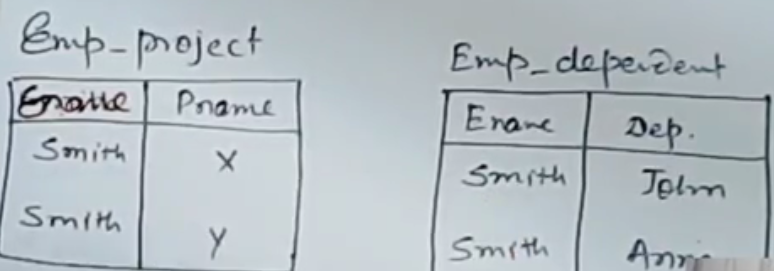 Emp_project
Ename Pname
Smith X
Smith Y
Emp_dependent
Ename Dep.
Smith John
Smith